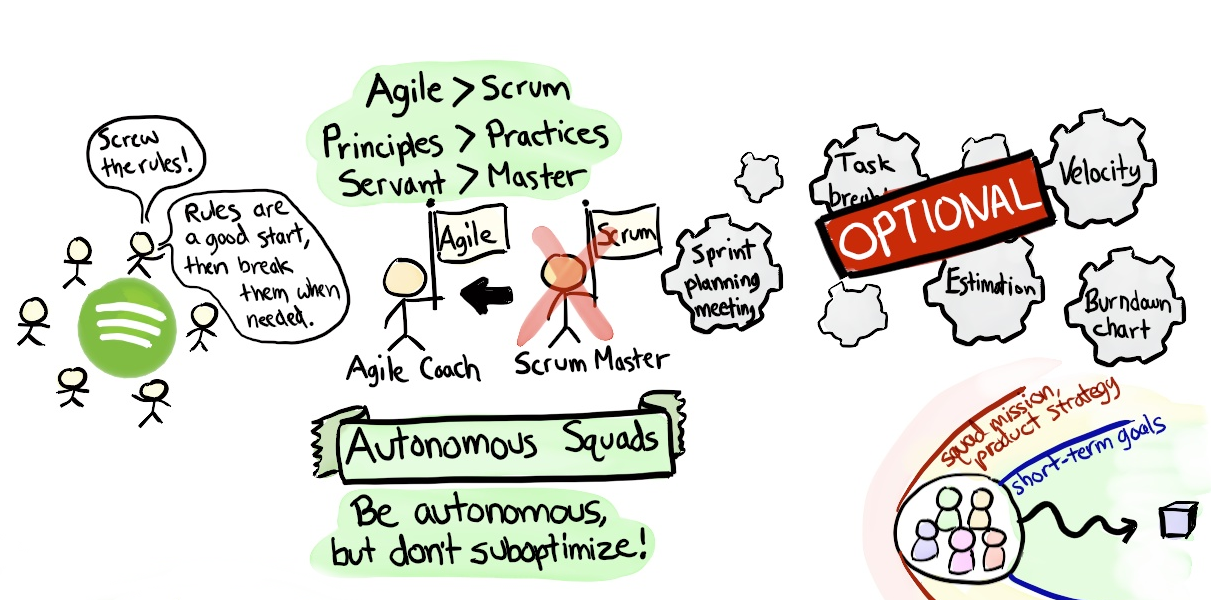 Screw
the rules!
Rules are
a good start,
then break
them when
needed.
Agile > Scrum
Principles > Practices
Servant > Master
Agile
Scrum
Agile Coach
Scrum Master
Autonomous Squads
Be autonomous,
but don't suboptimize!
Sprint
planning
meeting
Task
OPTIONAL
Velocity
Estimation
Burndown
chart
squad mission,
product strategy
short-term goals